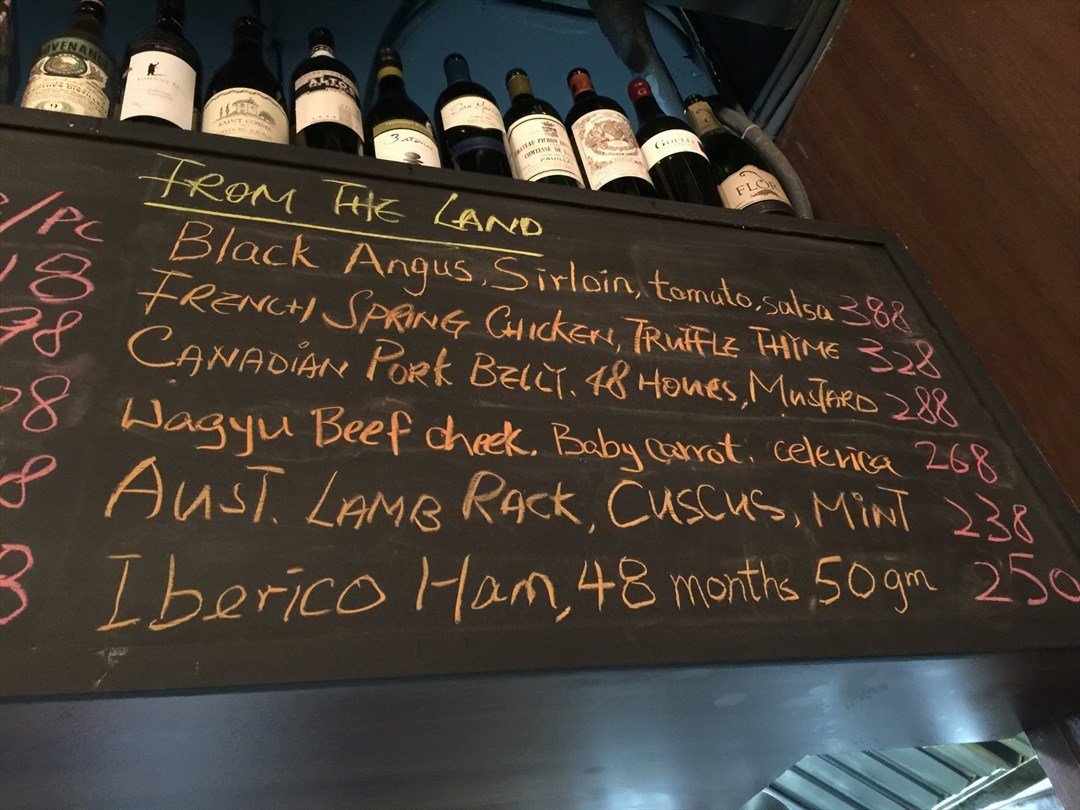 PROVENANCE
SAINT COSME
ALTO
CHATEAU PICHON
COMTESSE DE
PAUILLAC
FLOR
FROM THE LAND
/PC
Black Angus, Sirloin, tomato, salsa 388
18
FRENCH SPRING CHICKEN, TRUFFLE THYME 328
98
CANADIAN PORK BELLY. 48 HOURS, MUSTARD 288
Wagyu Beef cheek. Baby carrot. celerica 268
AUST. LAMB RACK, CUSCUS, MINT 238
Iberico Ham, 48 months 50gm 250